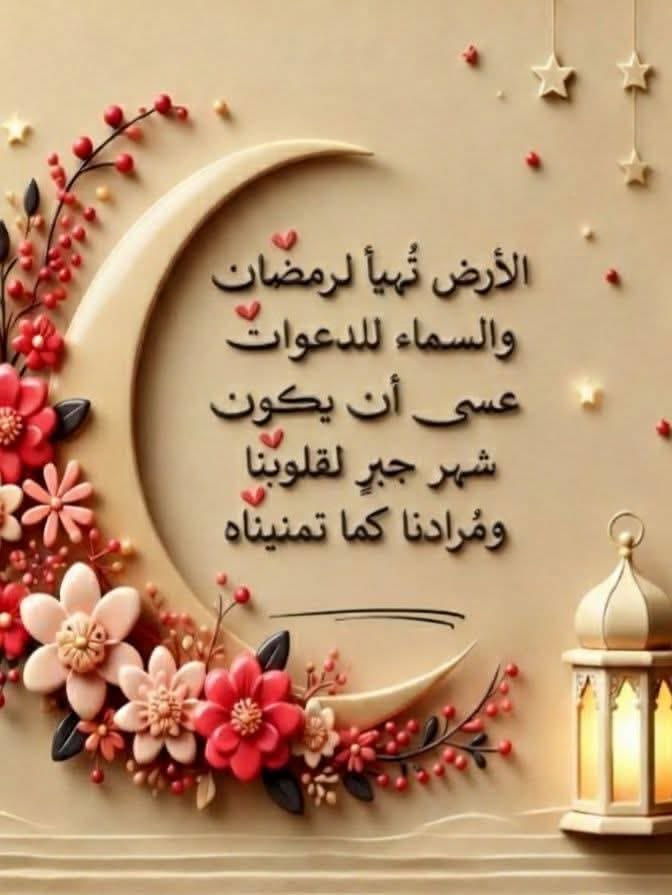 الأرض تُهيأ لرمضان
والسماء للدعوات
عسى أن يكون
شهر جبرٍ لقلوبنا
ومُرادنا كما تمنيناه